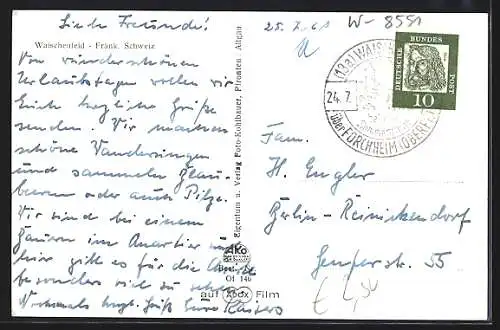 Liebe Freunde!
Waischenfeld - Fränk. Schweiz
Von wunderschönen
Urlaubstagen wollen wir
Euch herzliche Grüße
senden. Wir machen
schöne Wanderungen
und sammeln Blau-
beeren oder auch Pilze.
Wir sind bei einem
Bauern im Quartier und
hier gibt es für die
besonders viel zu sehen.
Nochmals herzl. Grüße Eure Kaisers
Eigentum u. Verlag Foto-Kohlbauer, Pfronten Allgäu
AKO
Of 146
auf Adox Film
25.7.61
W-8551
(13a) WAISCHENFELD
24.7.
über FORCHHEIM (OBERFR)
DEUTSCHE BUNDESPOST
10
Fam.
H. Engler
Berlin-Reinickendorf
Genfer str. 55